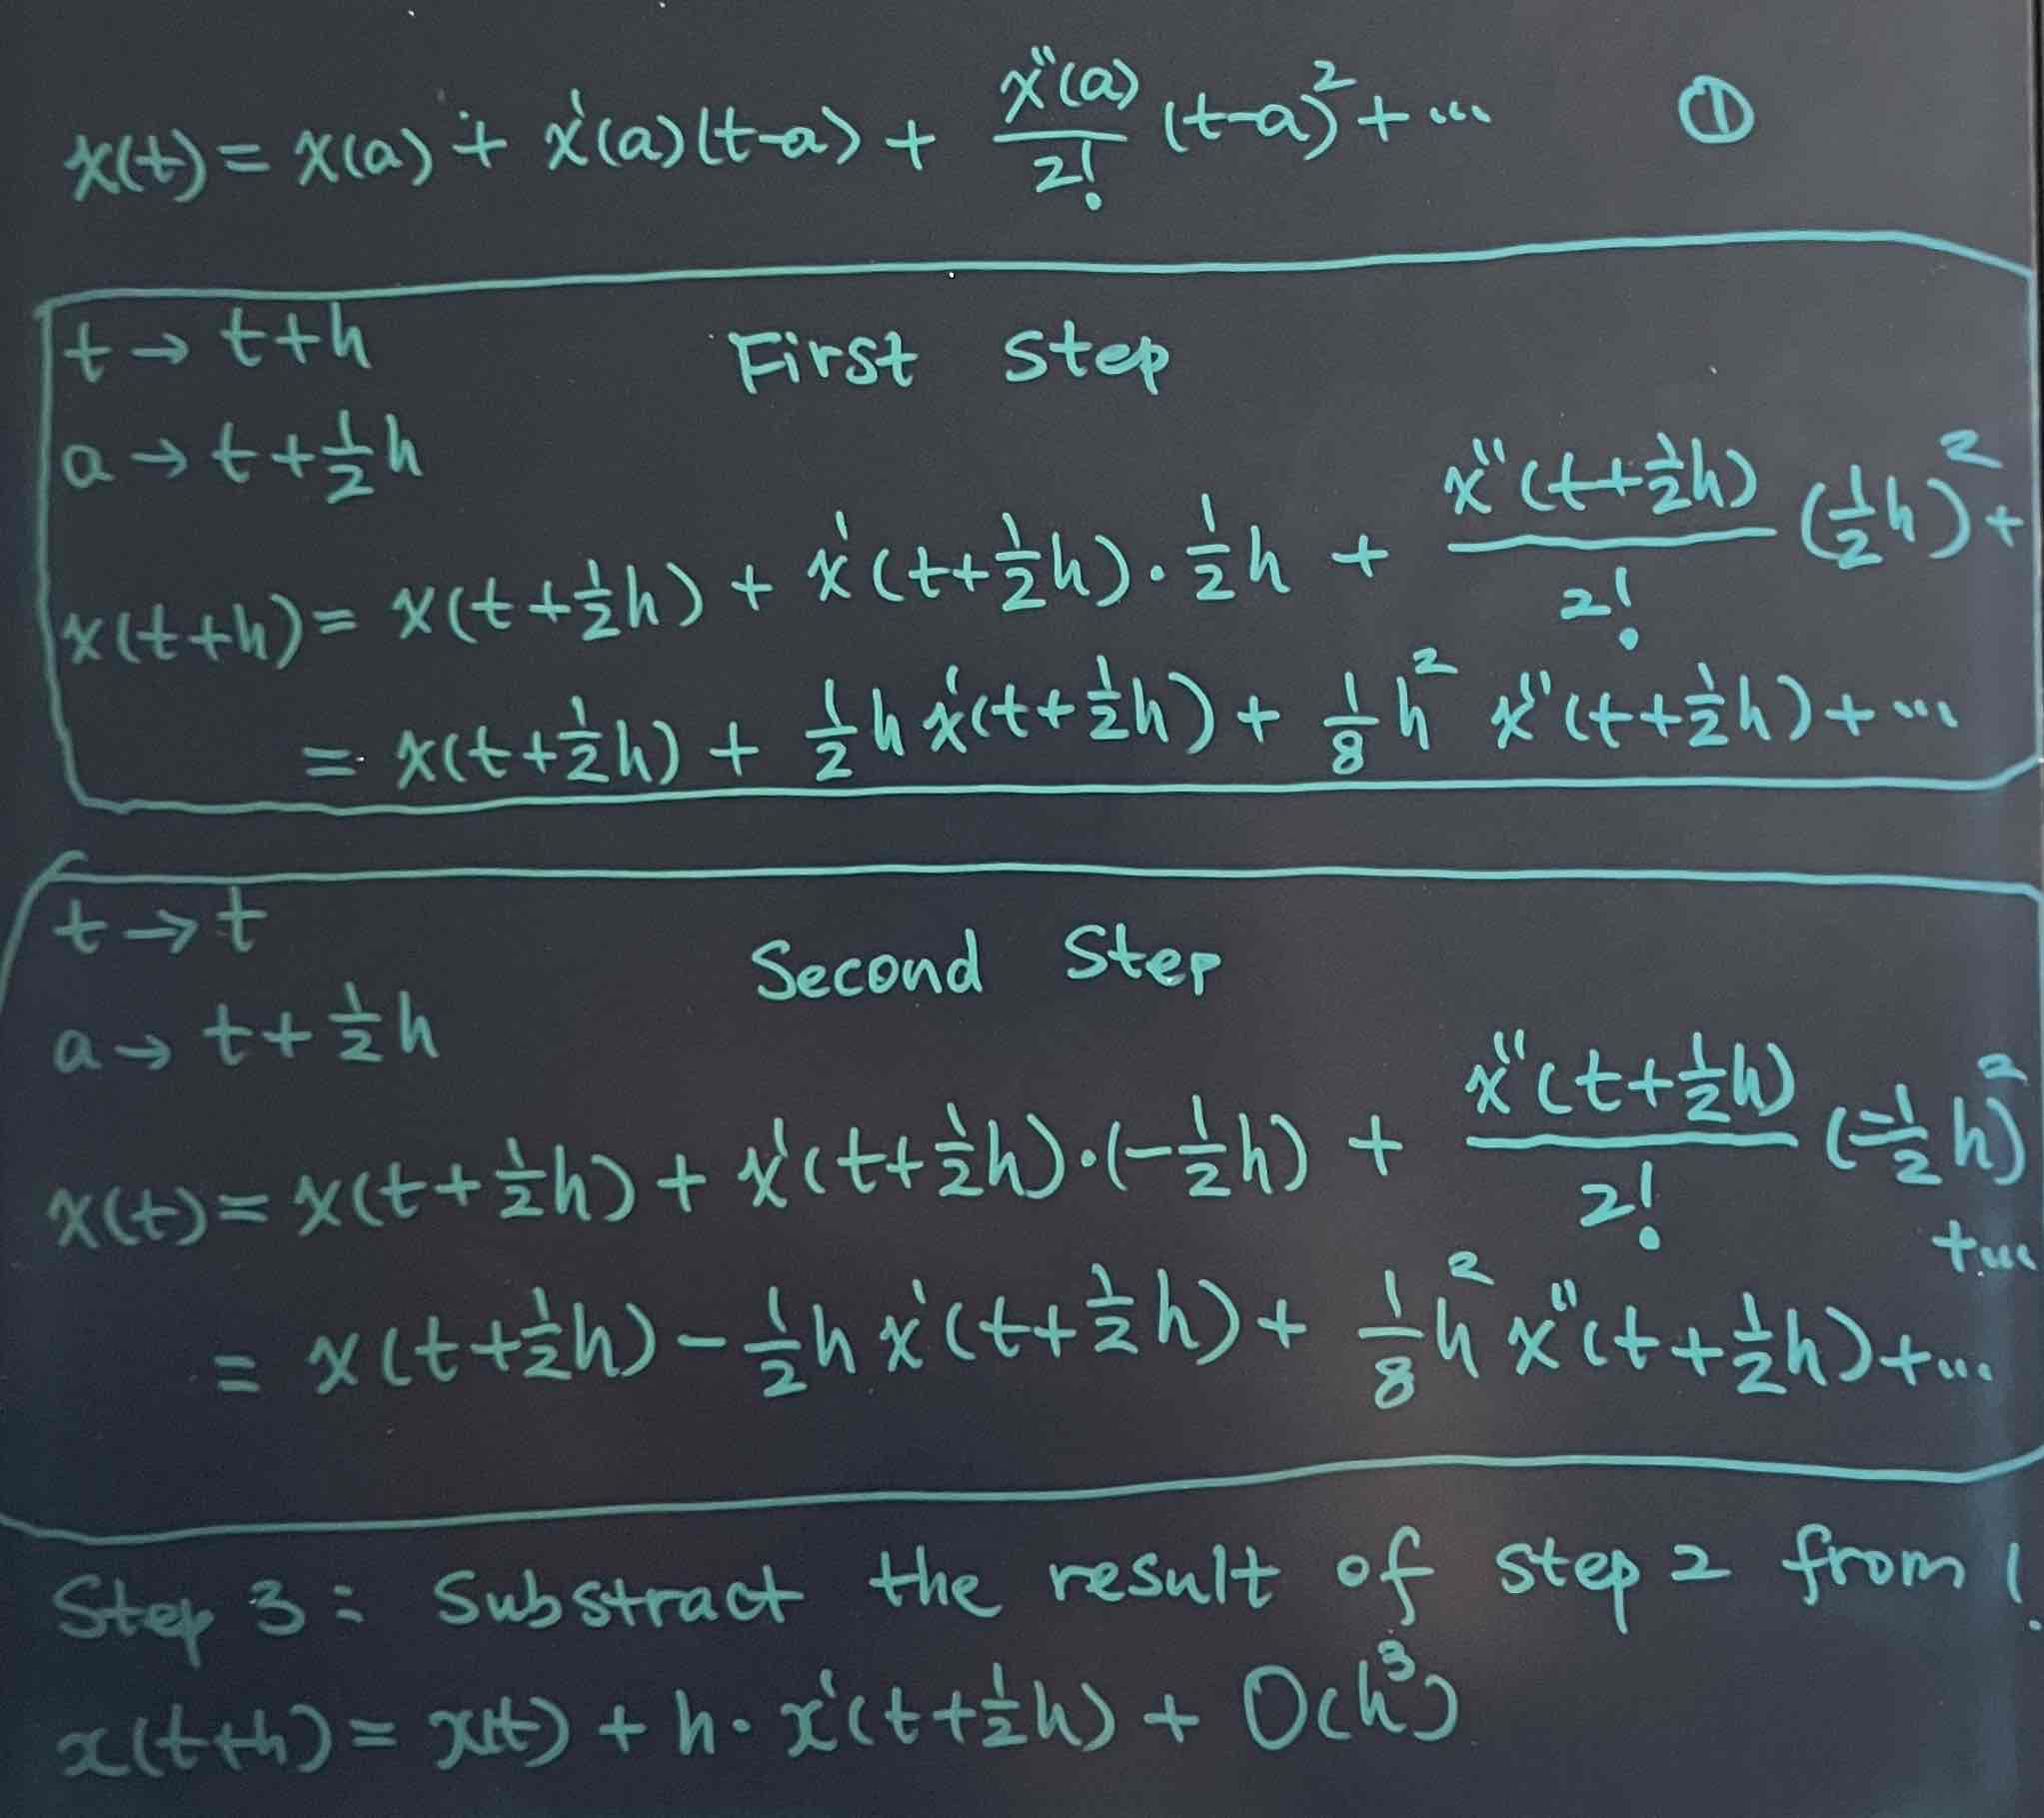 x(t) = x(a) + x'(a)(t-a) + x''(a)/2! (t-a)² + ... ①
t → t+h
First Step
a → t+½h
x(t+h) = x(t+½h) + x'(t+½h)·½h + x''(t+½h)/2! (½h)² +
= x(t+½h) + ½h x'(t+½h) + ⅛h² x''(t+½h) + ...
t → t
Second Step
a → t+½h
x(t) = x(t+½h) + x'(t+½h)·(-½h) + x''(t+½h)/2! (-½h)²
+...
= x(t+½h) - ½h x'(t+½h) + ⅛h² x''(t+½h) + ...
Step 3: Substract the result of step 2 from 1.
x(t+h) = x(t) + h·x'(t+½h) + O(h³)